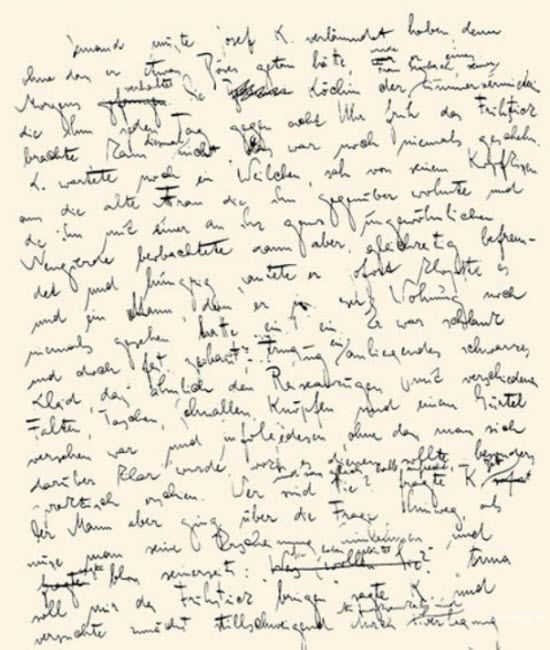 Jemand mußte Josef K. verläumdet haben, denn
ohne daß er etwas Böses getan hätte, wurde er eines
Morgens verhaftet. Die Köchin der Zimmervermieterin
die ihm jeden Tag gegen acht Uhr früh das Frühstück
brachte kam diesmal nicht. Das war noch niemals geschehn.
K. wartete noch ein Weilchen, sah von seinem Kopfkissen
aus die alte Frau die ihm gegenüber wohnte und
die ihn mit einer an ihr ganz ungewöhnlichen
Neugierde beobachtete dann aber, gleichzeitig befrem-
det und hungrig, läutete er. Sofort klopfte es
und ein Mann, den er in dieser Wohnung noch
niemals gesehen hatte trat ein. Er war schlank
und doch fest gebaut, er trug ein anliegendes schwarzes
Kleid, das ähnlich den Reiseanzügen mit verschiedenen
Falten, Taschen, Schnallen, Knöpfen und einem Gürtel
versehen war und infolgedessen ohne daß man sich
darüber klar wurde, wozu es dienen sollte, besonders
praktisch erschien. Wer sind Sie? fragte K.
Der Mann aber ging über die Frage hinweg, als
müsse man seine Erscheinung hinnehmen und
sagte bloß seinerseits: Anna
soll mir das Frühstück bringen sagte K. und
versuchte zunächst stillschweigend durch Überlegung